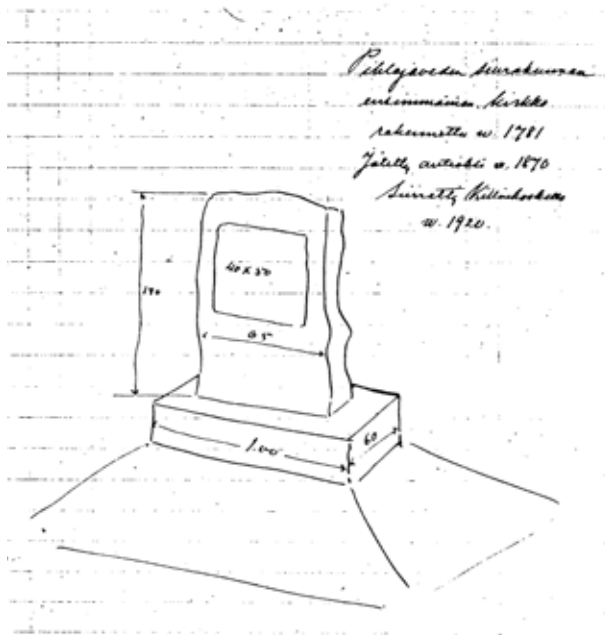 Pihlajaveden seurakunnan
ensimmäinen kirkko
rakennettu w. 1781
Jätetty autioksi w. 1870
Siirretty
w. 1920.
40 x 50
65
1.00
60